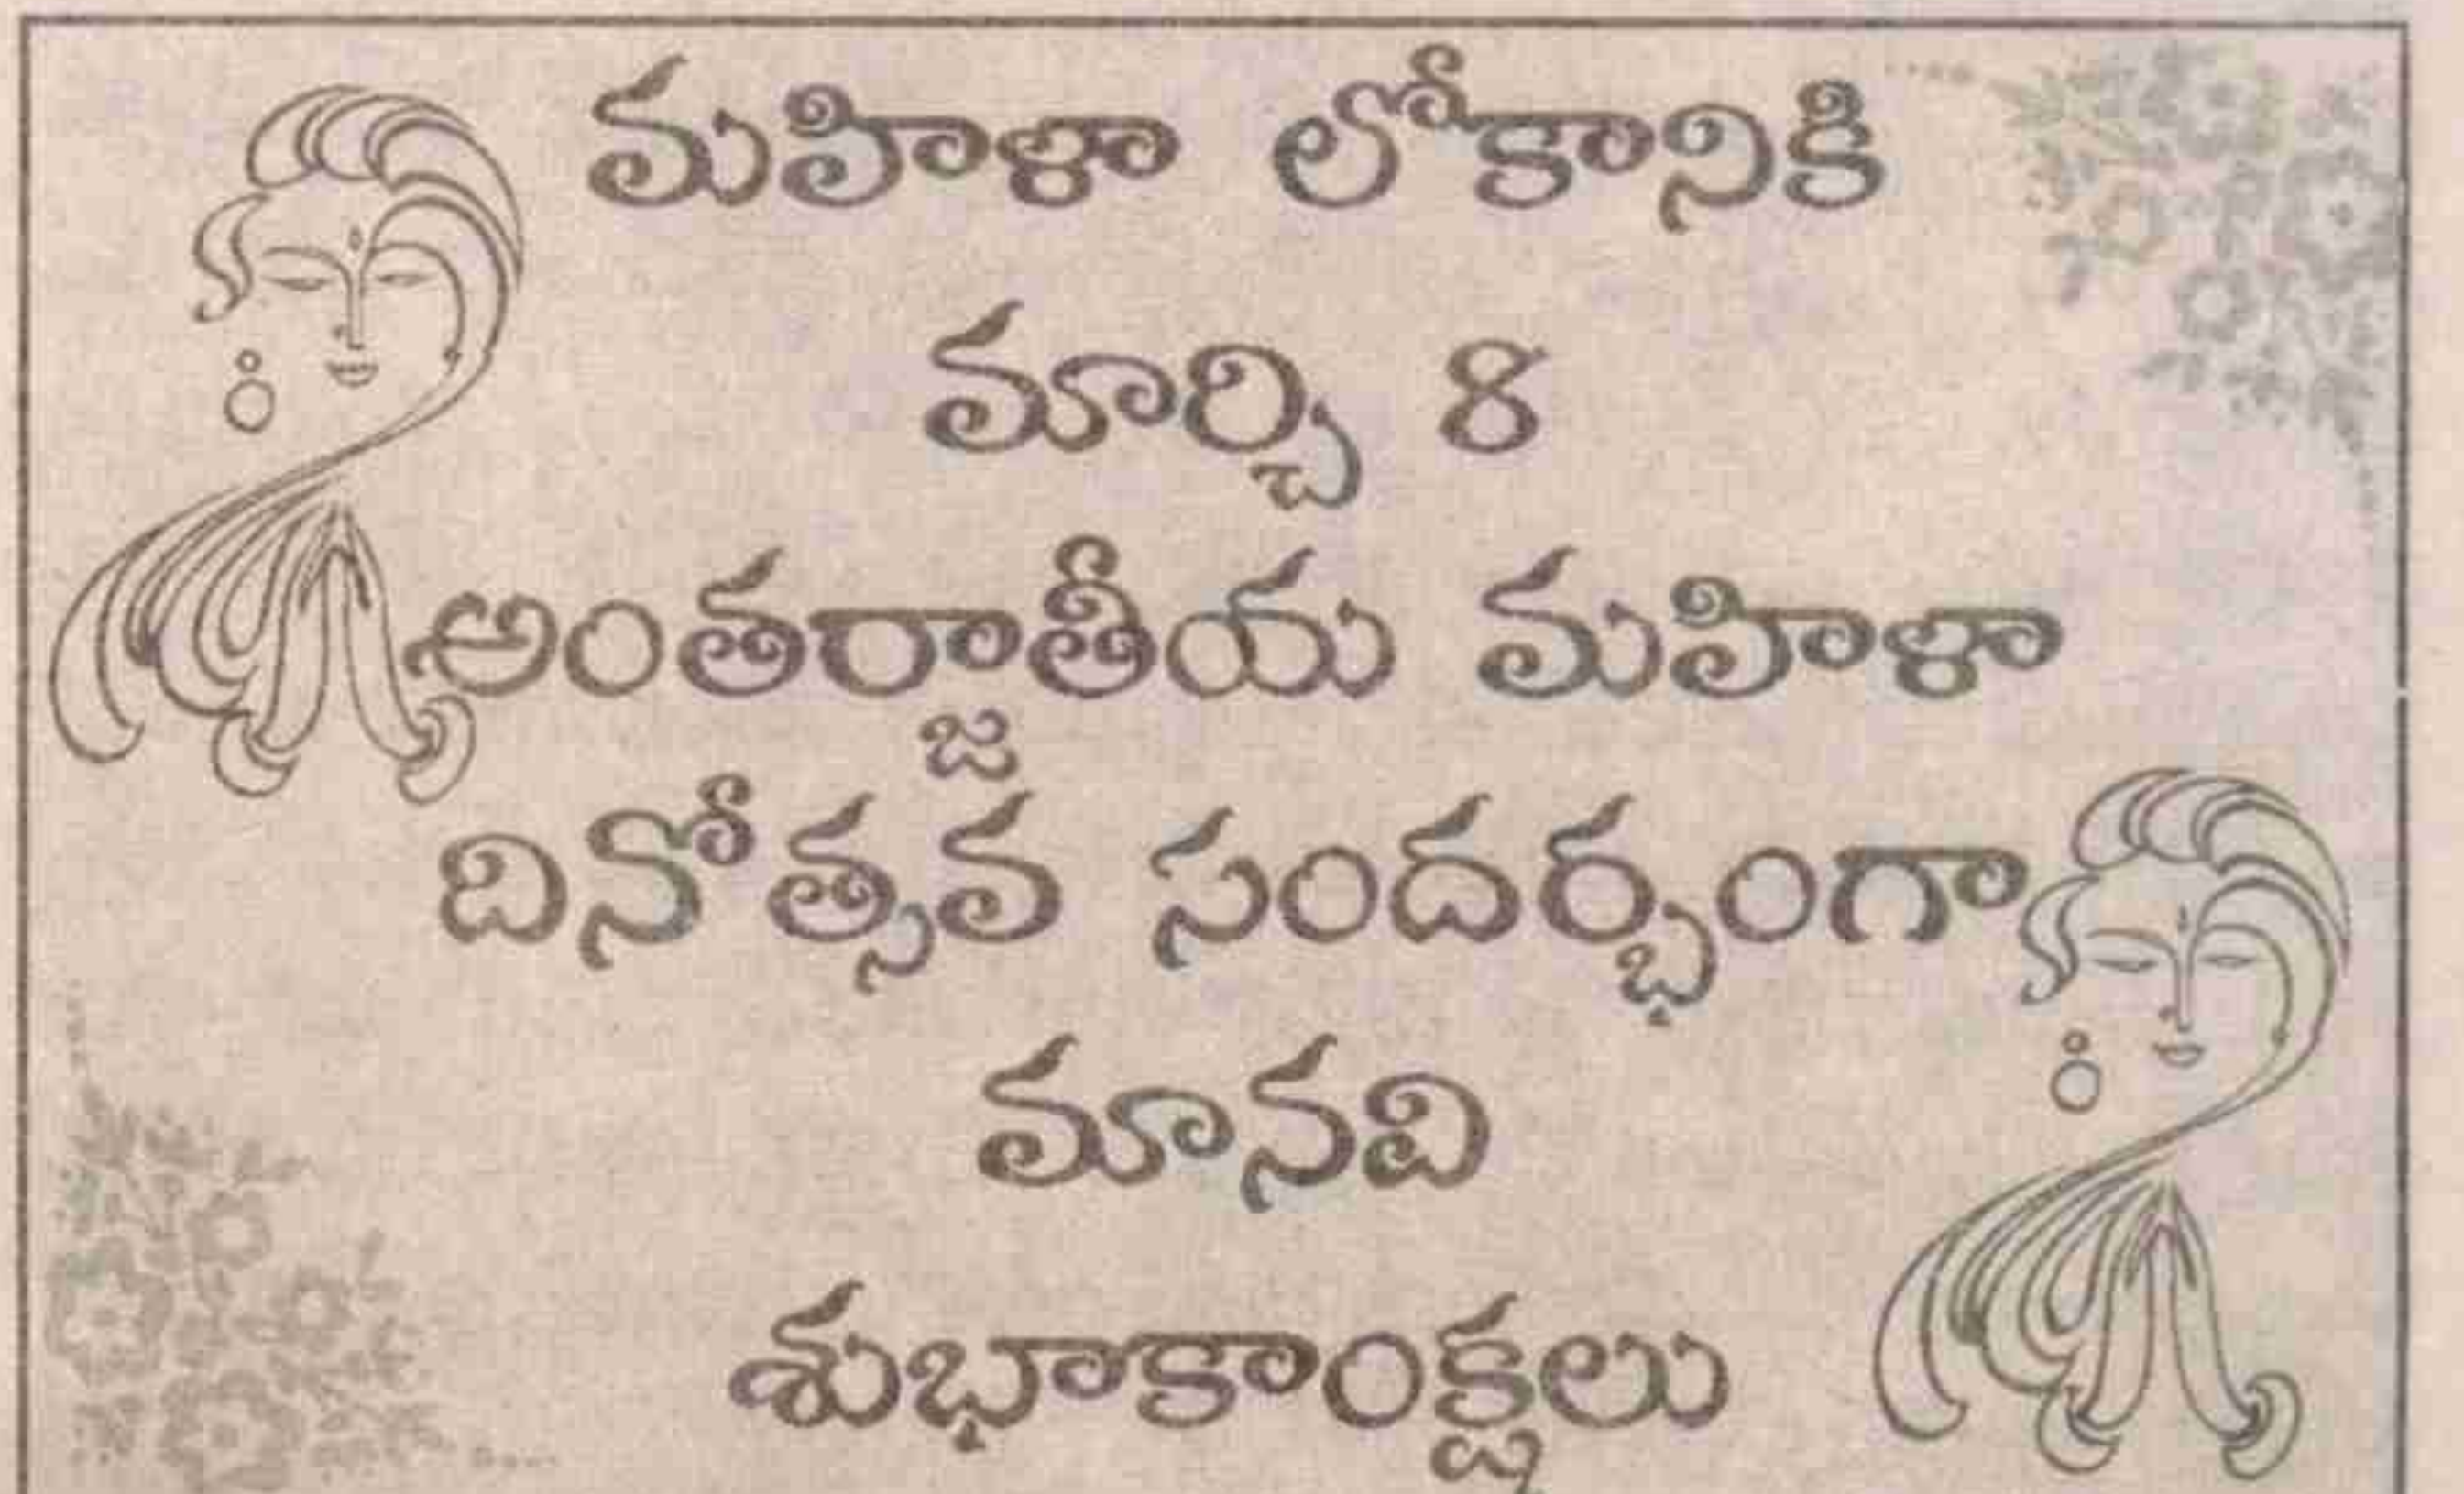 మహిళా లోకానికి
మార్చి 8
అంతర్జాతీయ మహిళా
దినోత్సవ సందర్భంగా
మానవి
శుభాకాంక్షలు